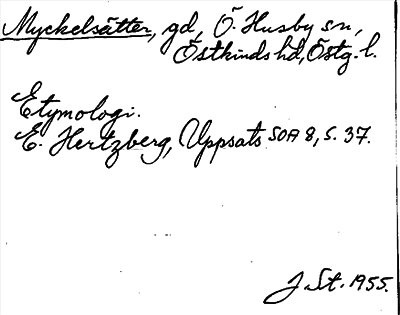 Myckelsätter, gd, Ö. Husby sn,
Östkinds hd, Östg. l.
Etymologi.
E. Hertzberg, Uppsats SOA 8, s. 37.
J St. 1955.